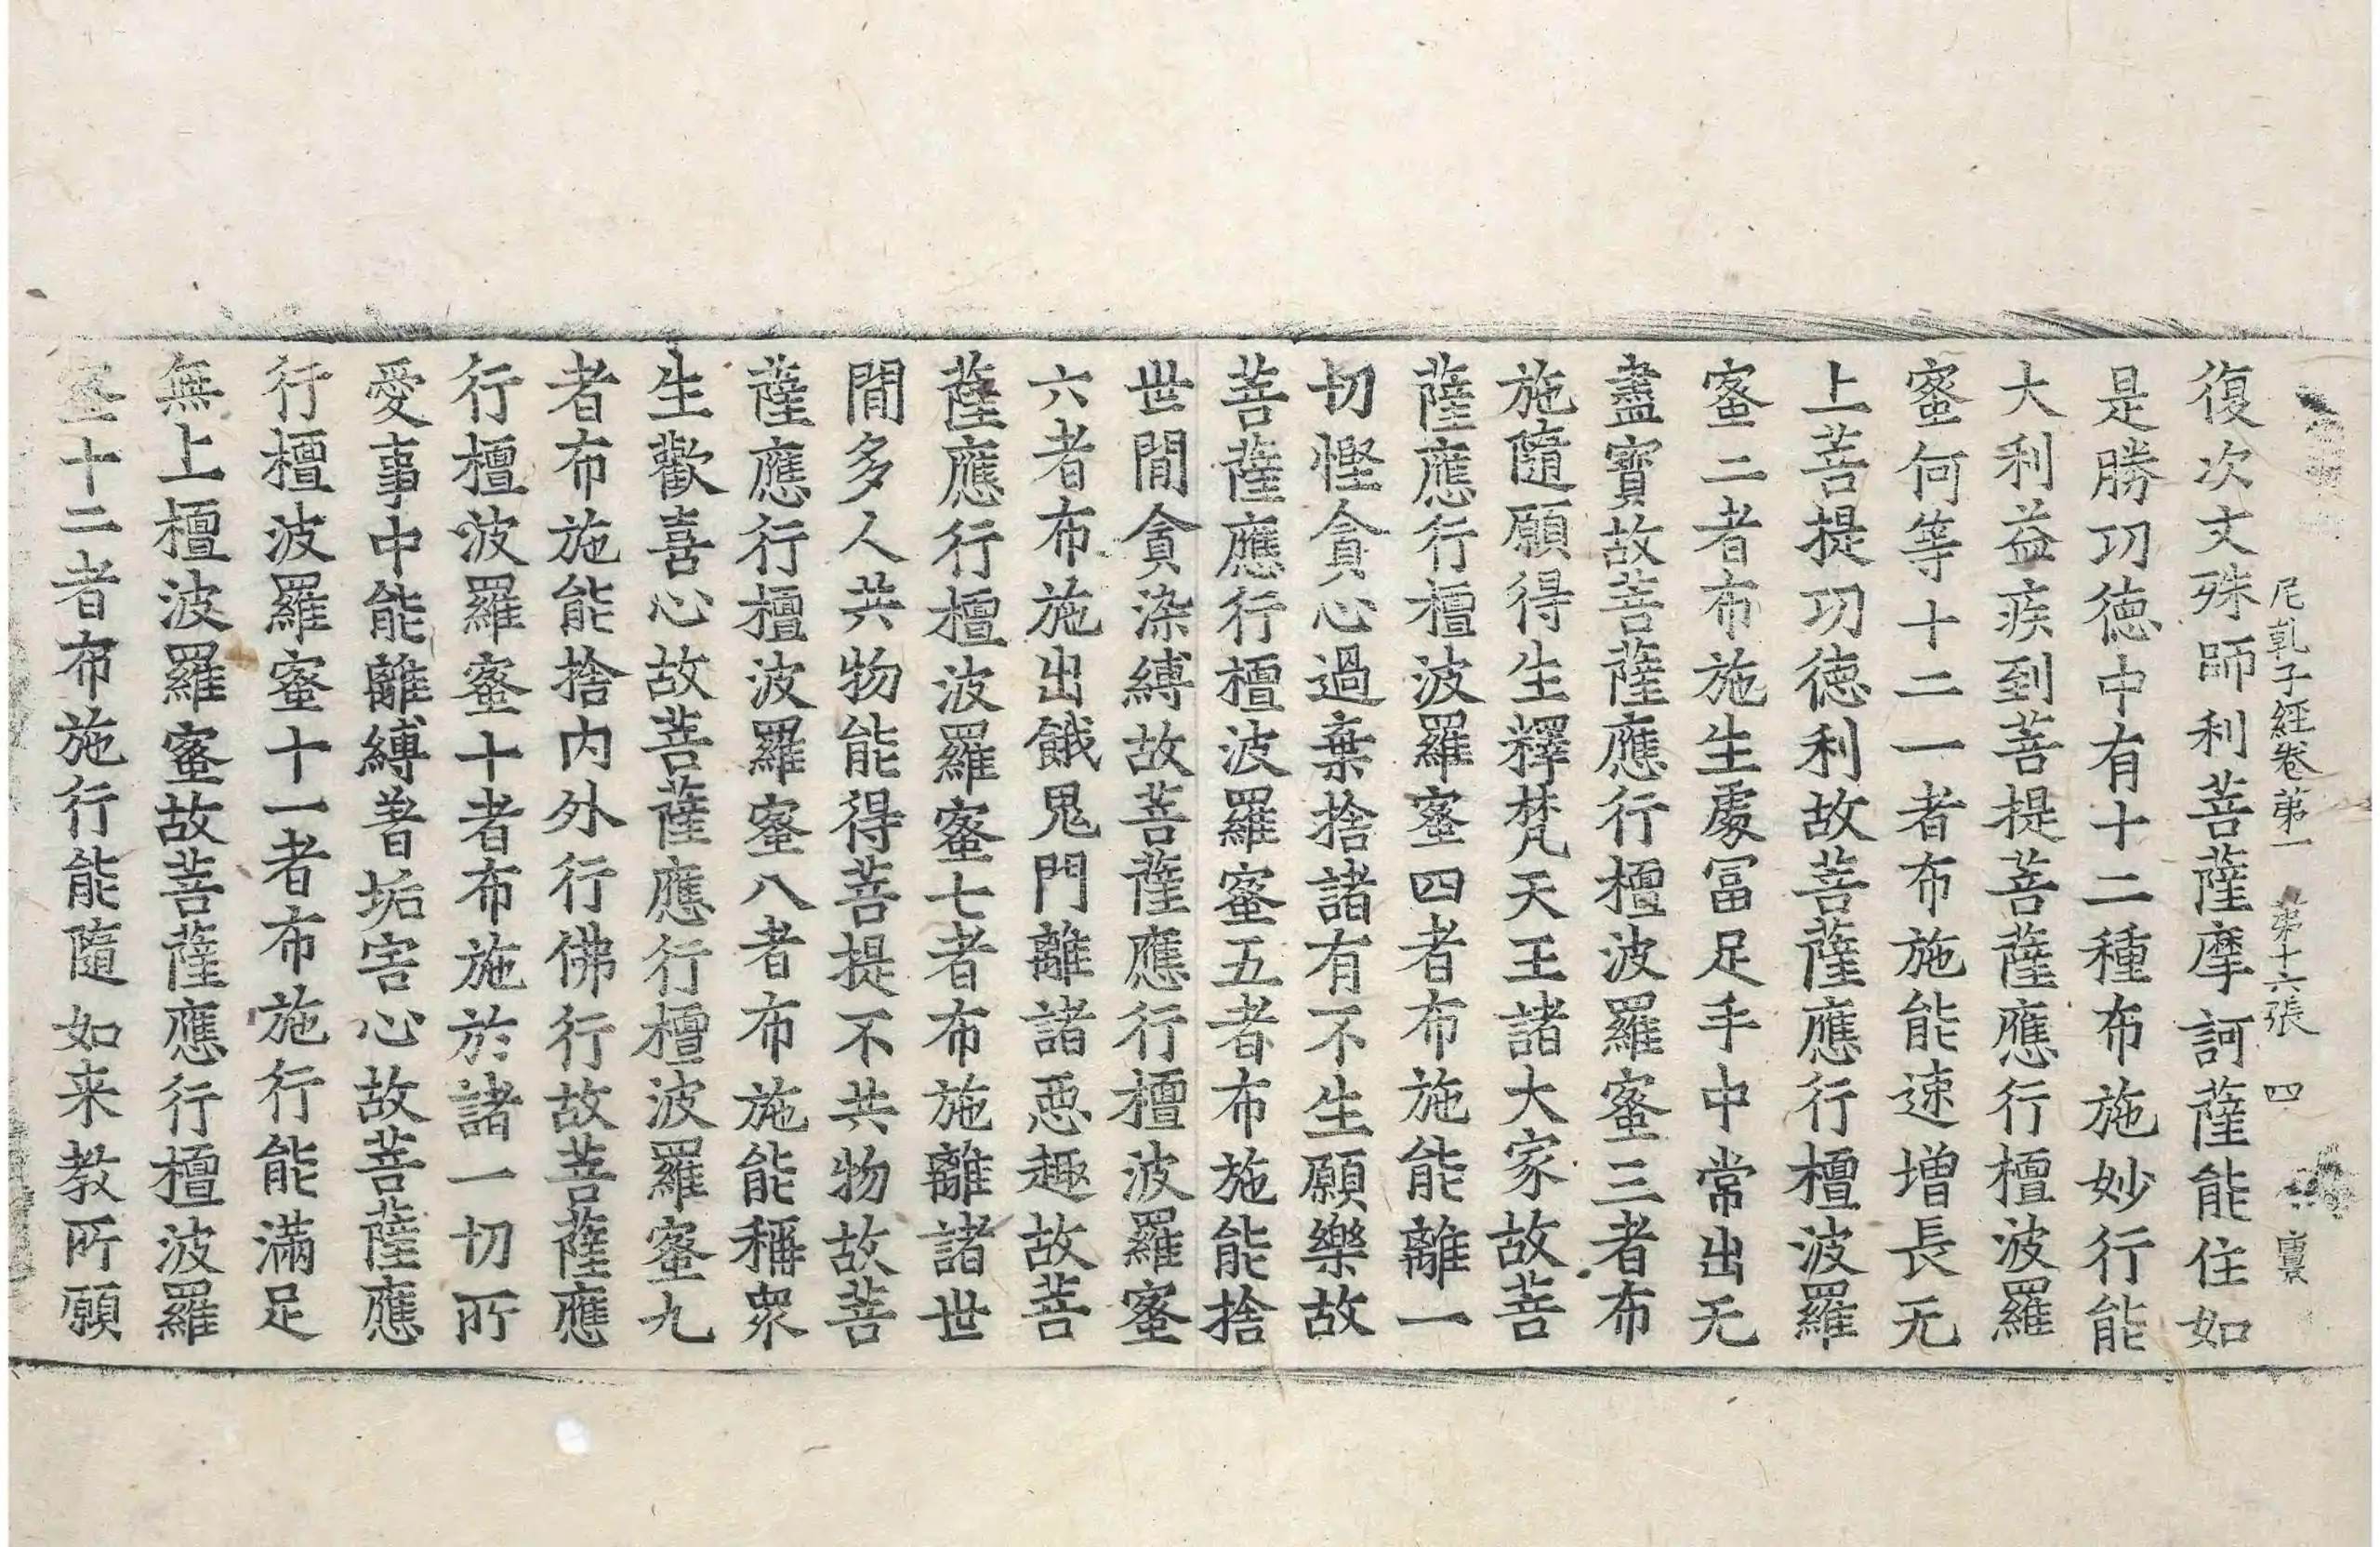 尼乹子經卷第一 第十六張 四
復次文殊師利菩薩摩訶薩能住如
是勝功德中有十二種布施妙行能
大利益疾到菩提菩薩應行檀波羅
蜜何等十二一者布施能速增長无
上菩提功德利故菩薩應行檀波羅
蜜二者布施生處冨足手中常出无
盡寶故菩薩應行檀波羅蜜三者布
施隨願得生釋梵天王諸大家故菩
薩應行檀波羅蜜四者布施能離一
切慳貪心過棄捨諸有不生願樂故
菩薩應行檀波羅蜜五者布施能捨
世間貪染縛故菩薩應行檀波羅蜜
六者布施出餓鬼門離諸惡趣故菩
薩應行檀波羅蜜七者布施離諸世
間多人共物能得菩提不共物故菩
薩應行檀波羅蜜八者布施能稱衆
生歡喜心故菩薩應行檀波羅蜜九
者布施能捨內外行佛行故菩薩應
行檀波羅蜜十者布施於諸一切所
愛事中能離縛著垢害心故菩薩應
行檀波羅蜜十一者布施行能滿足
無上檀波羅蜜故菩薩應行檀波羅
蜜十二者布施行能隨如来教所願